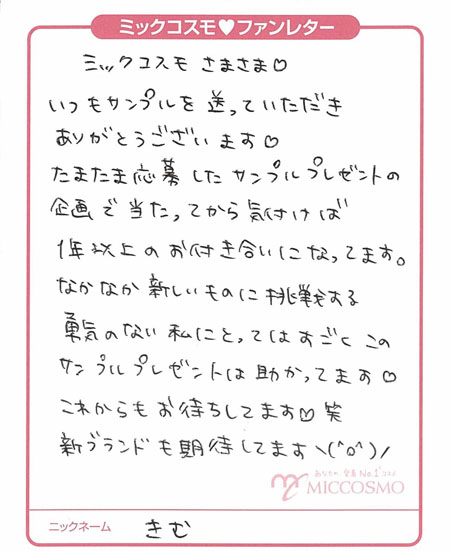 ミックコスモ♥ファンレター
ミックコスモ さまさま♡
いつもサンプルを送っていただき
ありがとうございます♡
たまたま応募したサンプルプレゼントの
企画で当たってから気付けば
1年以上のお付き合いになってます。
なかなか新しいものに挑戦する
勇気のない私にとってはすごくこの
サンプルプレゼントは助かってます♡
これからもお待ちしてます♡笑
新ブランドも期待してます\(^o^)/
MICCOSMO
ニックネーム きむ